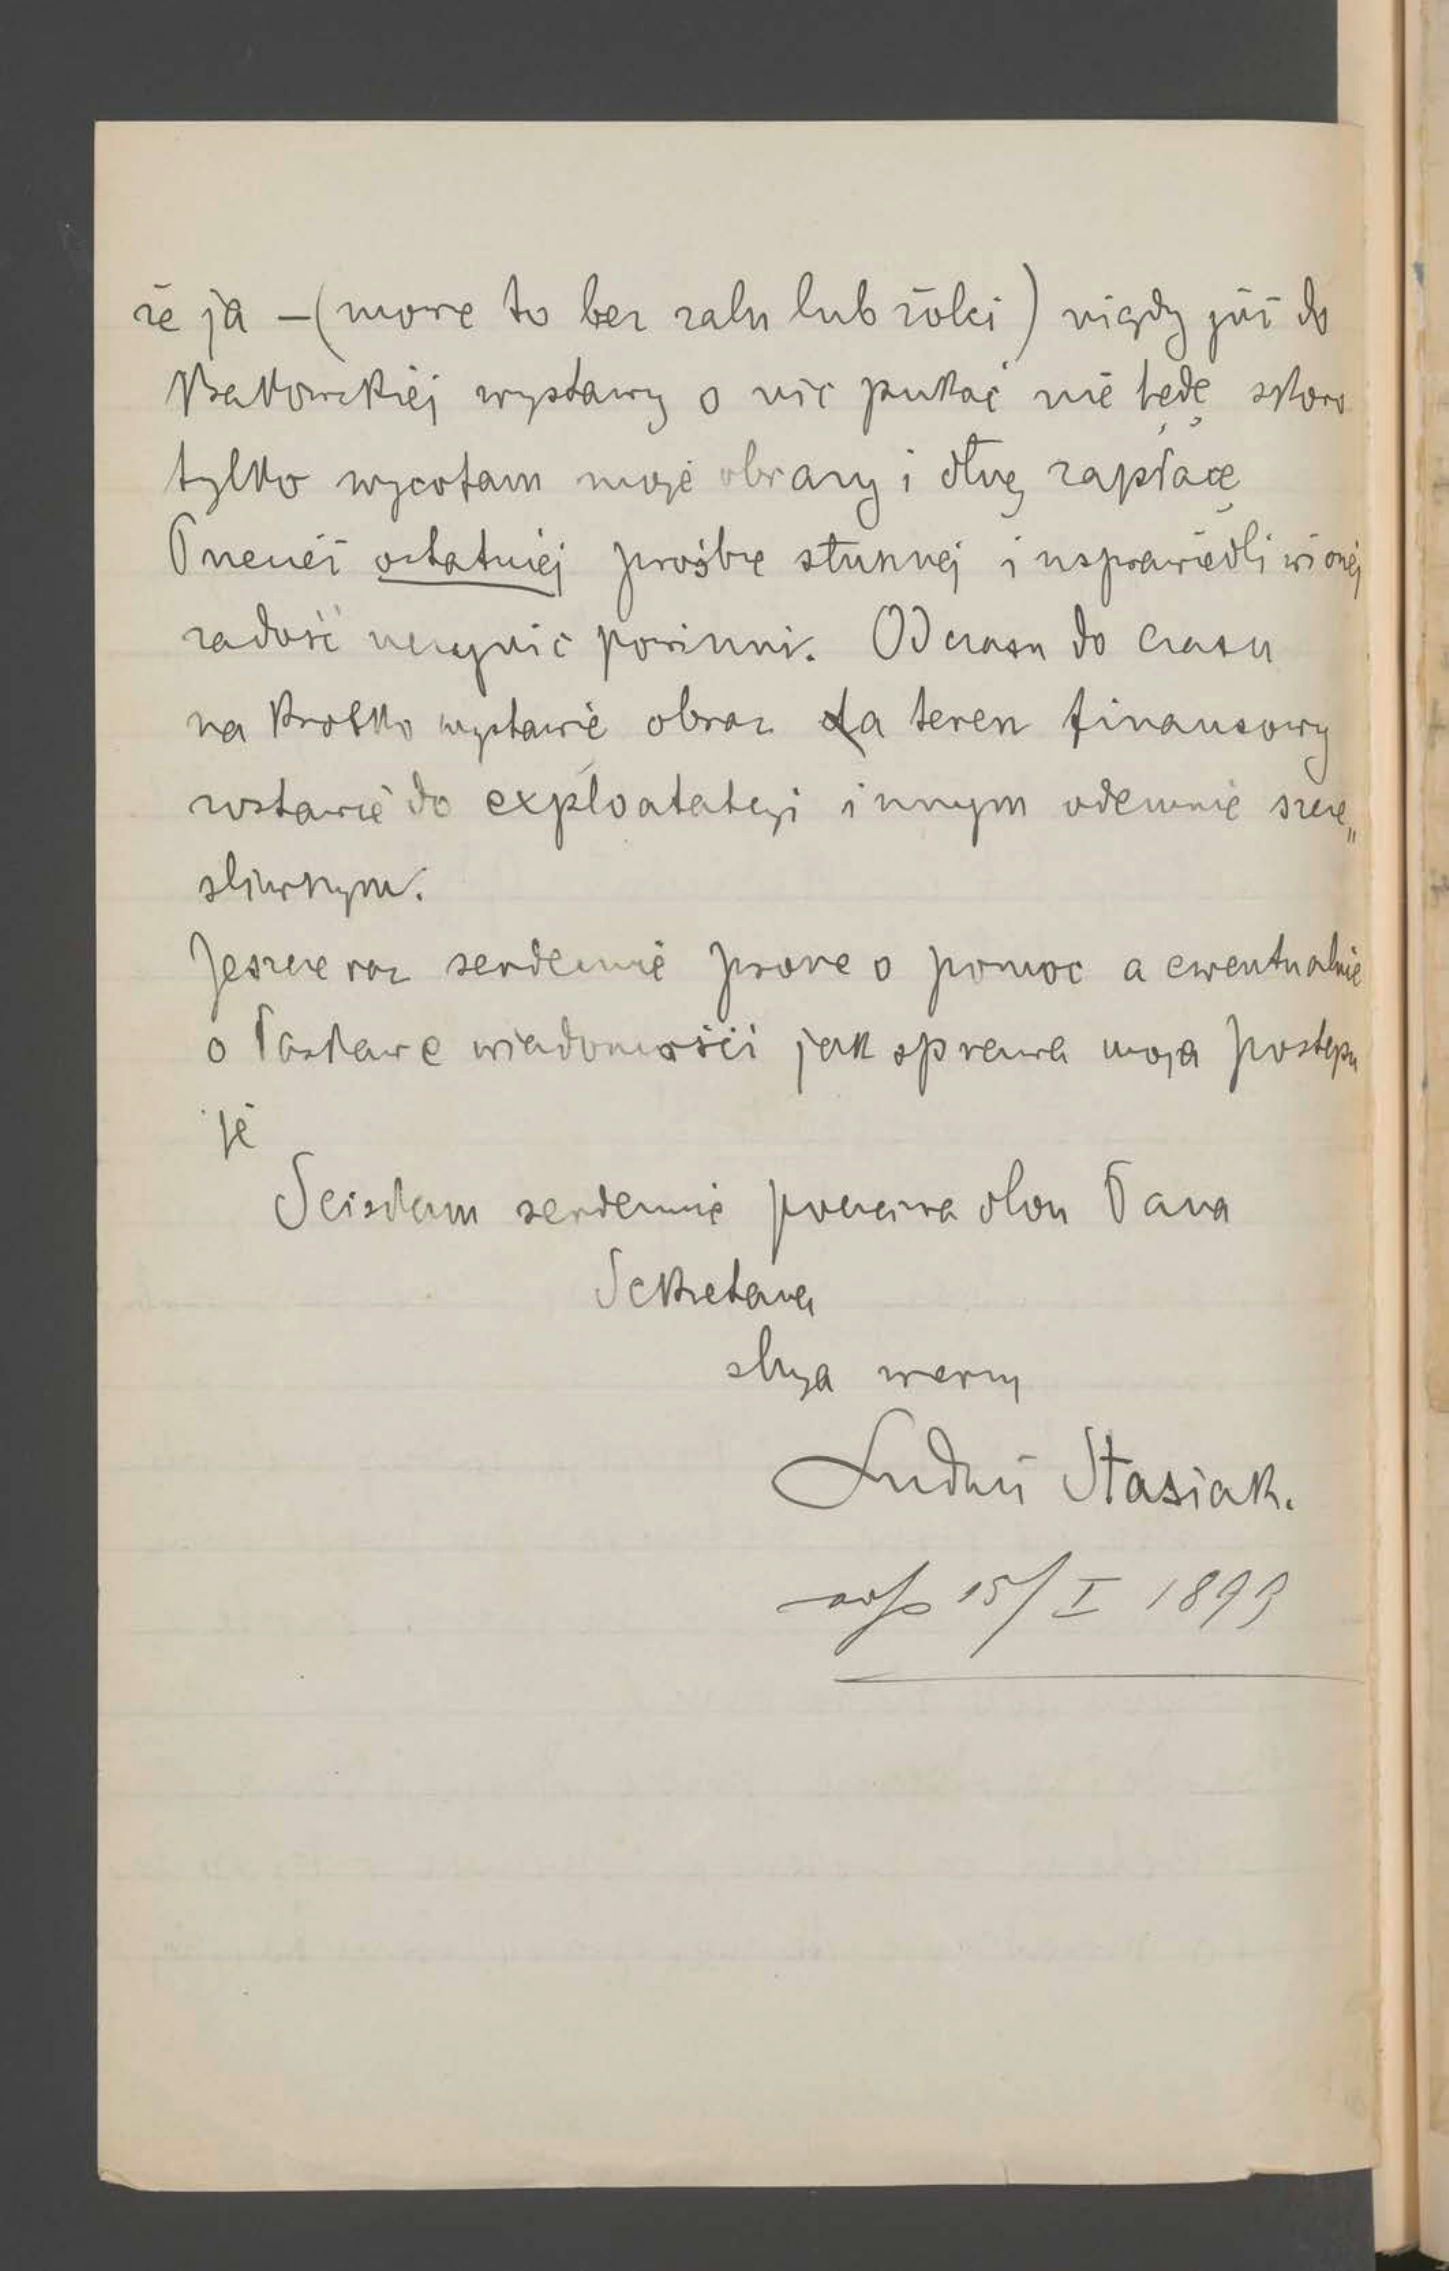 że ja – (mowę to bez żalu lub żółci) nigdy już do
Krakowskiej wystawy o nic pukać nie będę skoro
tylko wycofam moje obrazy i dług zapłacę
Przecież ostatniej prośbie słusznej i usprawiedliwionej
zadość uczynić powinni. Od czasu do czasu
na krótko wystawię obraz a teren finansowy
zostawię do exploatatcyi innym odemnie szczę„
śliwszym.
Jeszcze raz serdecznie proszę o pomoc a ewentualnie
o łaskawe wiadomości jak sprawa moja postępu
je
Ściskam serdecznie poczciwa dłoń Pana
Sekretarza
sługa wierny
Ludwik Stasiak.
odp 15/I 1899